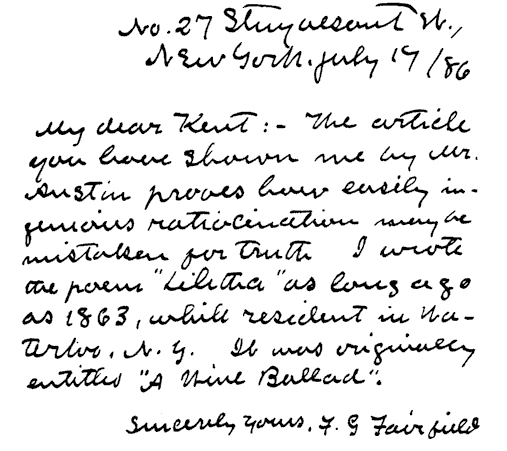 No. 27 Stuyvesant St.,
New York. July 17/86
My dear Kent:- The article
you have shown me by Mr.
Austin proves how easily in-
genious ratiocination may be
mistaken for truth I wrote
the poem "Lilitha" as long ago
as 1863, while resident in Wa-
terloo, N. Y. It was originally
entitled "A Wine Ballad".
Sincerely Yours, F. G Fairfield